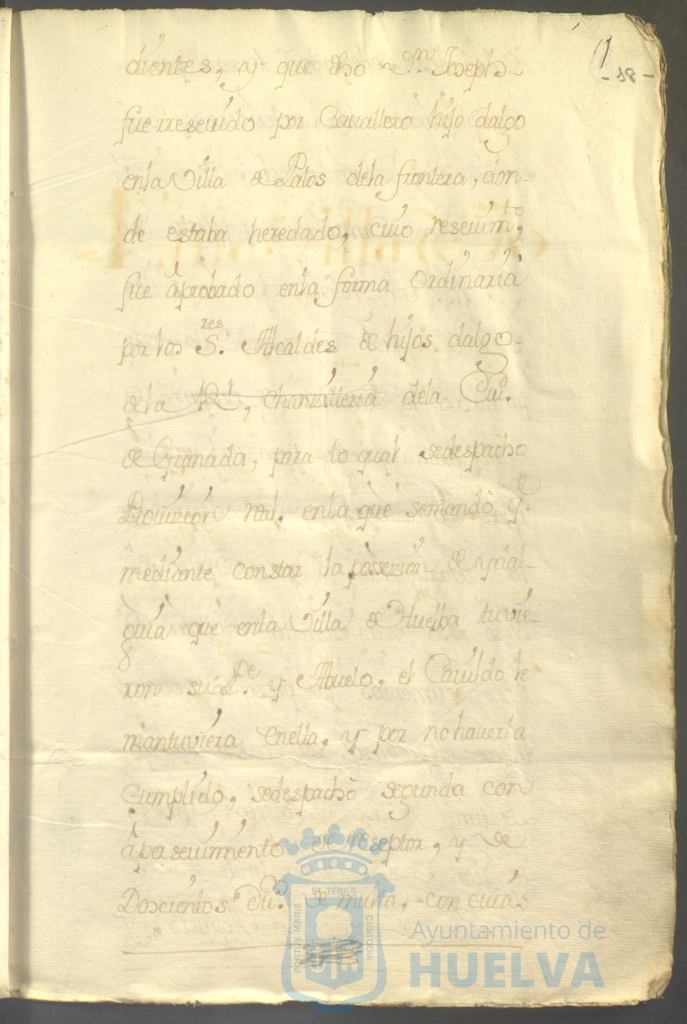 - 18 -
dientes, y que dho Dn. Joseph-
fue rreseuido por Cauallero hijo dalgo
en la Villa de Palos dela frontera, don-
de estaba heredado, cuio reseuimto,
fue âprobado enla forma Ordinaria
por los Sres. Alcaldes de hijos dalgo-
de la Rl, chanzilleria dela Ciu.
de Granada, para lo qual sedespacho
Prouizcon real. enla que semandò q.e
mediante constar la possezion de ydal-
guia que enla Villa de Huelba tuvie-
ron su Pe. y Abuelo, el Cauildo le
mantuviera enella, y por no hauerla
Cumplido, sedespachò segunda con
âperseuimiento de Reseptor, y de
Doscientos du.s de multa. con cuias
PORTUS MARIS
ET TERRÆ
CUSTODIA
Ayuntamiento de
HUELVA